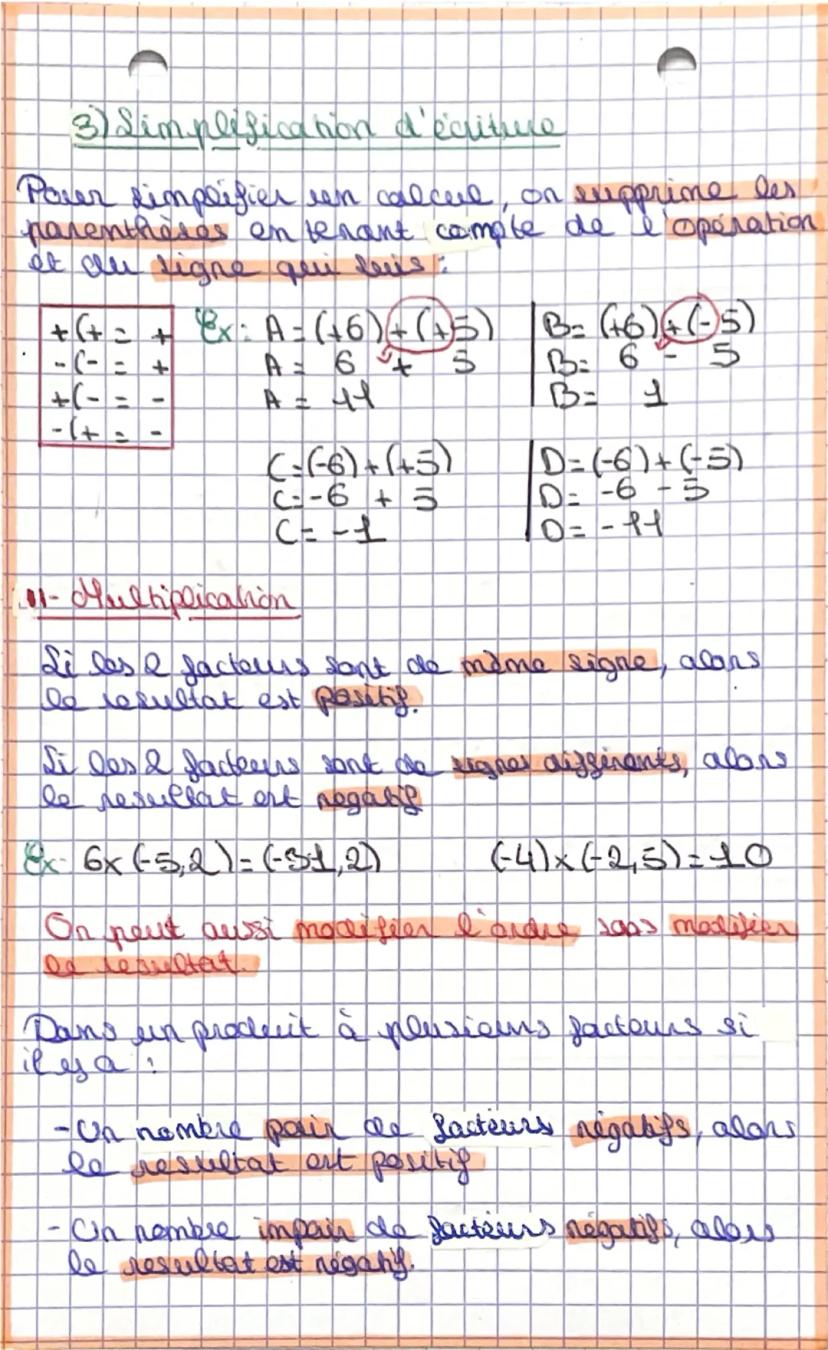 3) Simplification d'écriture
Pour simplifier un calcul, on supprime les
parenthèses en tenant compte de l'opération
et du signe qui suis :
+(+ = +
-(- = +
+(- = -
-(+ = -
Ex: A = (+6) + (+5)
A = 6 + 5
A = 11
B = (+6) + (-5)
B = 6 - 5
B = 1
C = (-6) + (+5)
C = -6 + 5
C = -1
D = (-6) + (-5)
D = -6 - 5
D = -11
II- Multiplication
Si les 2 facteurs sont de même signe, alors
le resultat est positif.
Si les 2 facteurs sont de signes différents, alors
le resultat est negatif
Ex: 6x (-5,2) = (-31,2) (-4) x (-2,5) = 10
On peut aussi modifier l'ordre sans modifier
le resultat.
Dans un produit à plusieurs facteurs si
il y a :
- Un nombre pair de facteurs négatifs, alors
le resultat est positif
- Un nombre impair de facteurs négatifs, alors
le resultat est négatif.